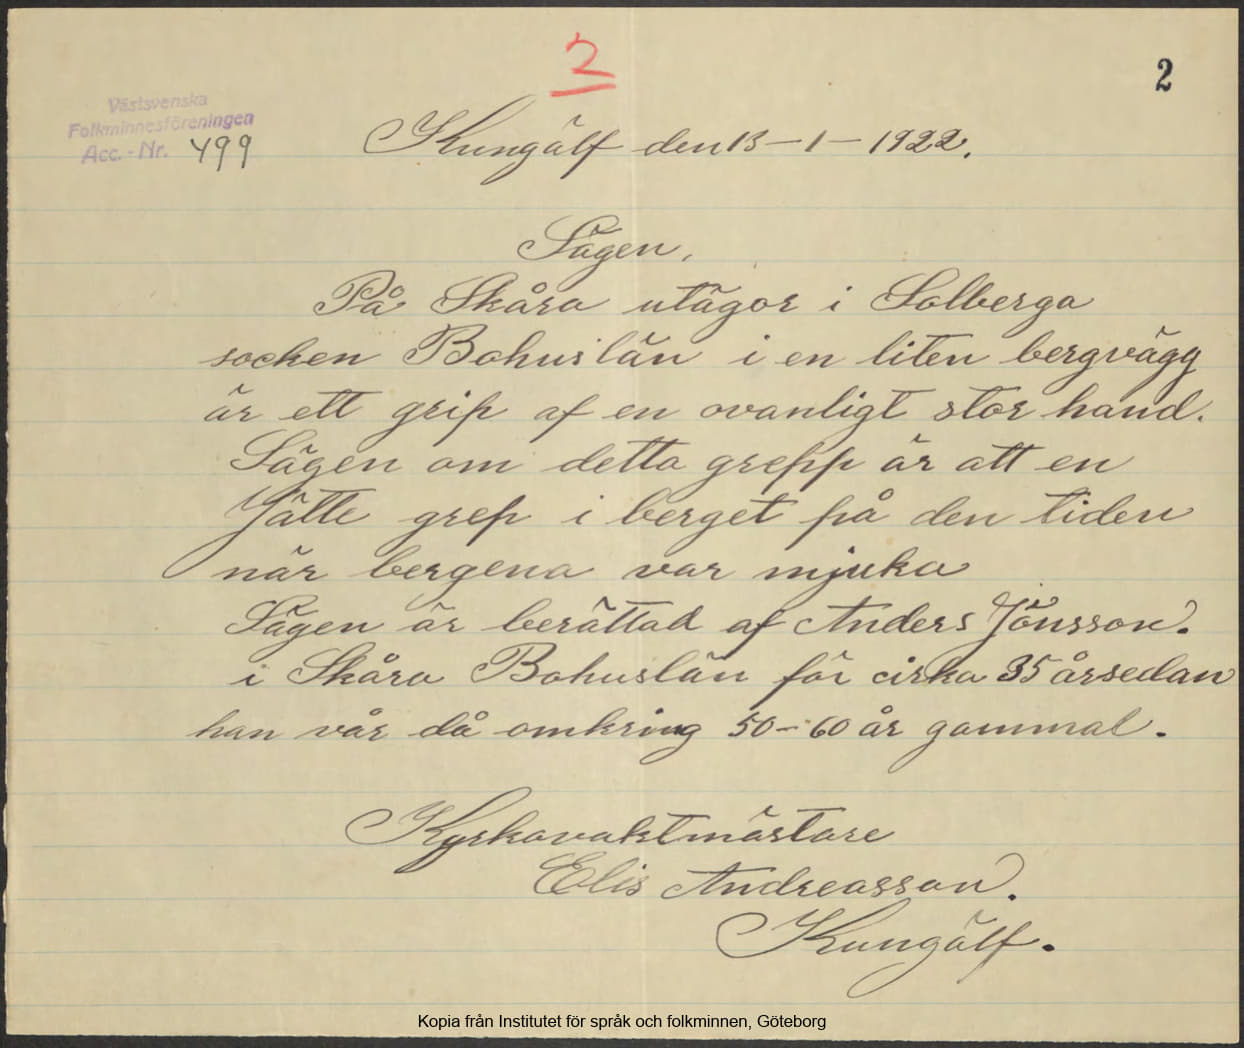 2
2
Västsvenska
Folkminnesföreningen
Acc.-Nr. 499
Kungälf den 13-1-1922.
Sägen.
På Skåra utägor i Solberga
socken Bohuslän i en liten bergvägg
är ett grip af en ovanligt stor hand.
Sägen om detta grepp är att en
Jätte grep i berget på den tiden
när bergena var mjuka
Sägen är berättad af Anders Jönsson.
i Skåra Bohuslän för cirka 35 årsedan
han vår då omkring 50-60 år gammal.
Kyrkovaktmästare
Elis Andreasson.
Kungälf.
Kopia från Institutet för språk och folkminnen, Göteborg